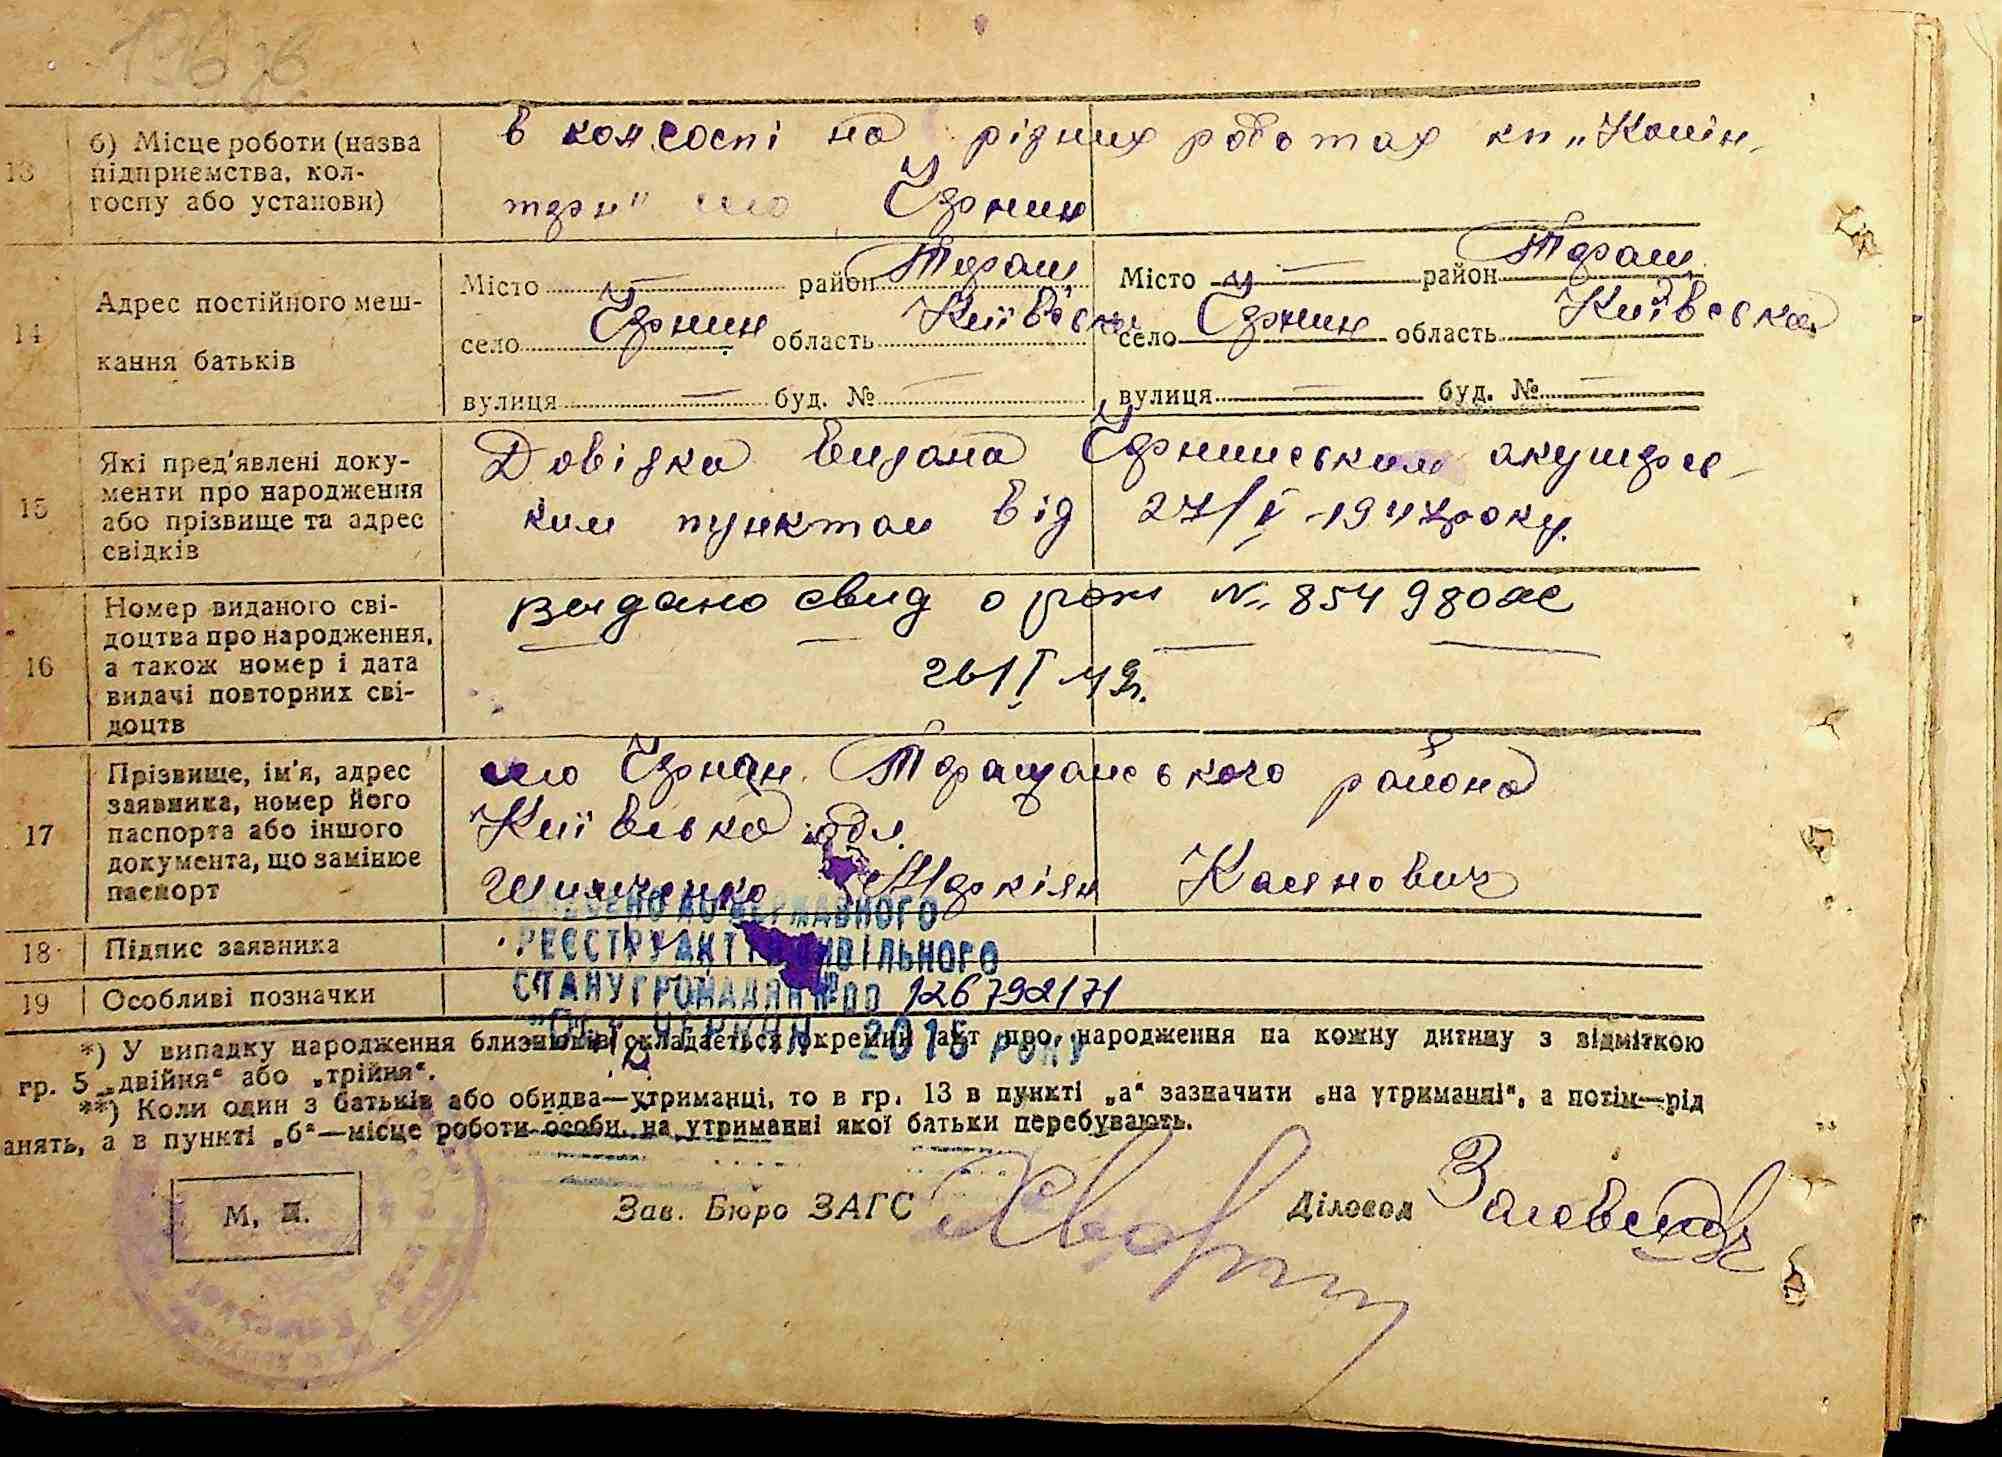 13
б) Місце роботи (назва
підприємства, кол-
госпу або установи)
в колгоспі на різних роботах кп „Комін-
терн" село Чернин
14
Адрес постійного меш-
кання батьків
Місто — район Тараш
село Чернин область Київська
вулиця — буд. № —
Місто — район Тараш
село Чернин область Київська
вулиця — буд. № —
15
Які пред'явлені доку-
менти про народження
або прізвище та адрес
свідків
Довідка видана Чернинським акушерсь-
ким пунктом від 27/V-1947 року.
16
Номер виданого сві-
доцтва про народження,
а також номер і дата
видачі повторних сві-
доцтв
Выдано свид о рож № 854980
17
Прізвище, ім'я, адрес
заявника, номер його
паспорта або іншого
документа, що замінює
паспорт
село Чернин Таращанського района
Київська обл.
Маркіян Касянович
18
Підпис заявника
19
Особливі позначки
ВНЕСЕНО ДО ДЕРЖАВНОГО
РЕЄСТРУ АКТІВ ЦИВІЛЬНОГО
СТАНУ ГРОМАДЯН №00 126792171
ЧЕРВНЯ 2015 РОКУ
*) У випадку народження близнюків складається окремий акт про народження на кожну дитину з відміткою
гр. 5 „двійня" або „трійня".
**) Коли один з батьків або обидва—утриманці, то в гр. 13 в пункті „а" зазначити „на утриманні", а потім—рід
анять, а в пункті „б"—місце роботи особи, на утриманні якої батьки перебувають.
М. П.
Зав. Бюро ЗАГС
Діловод